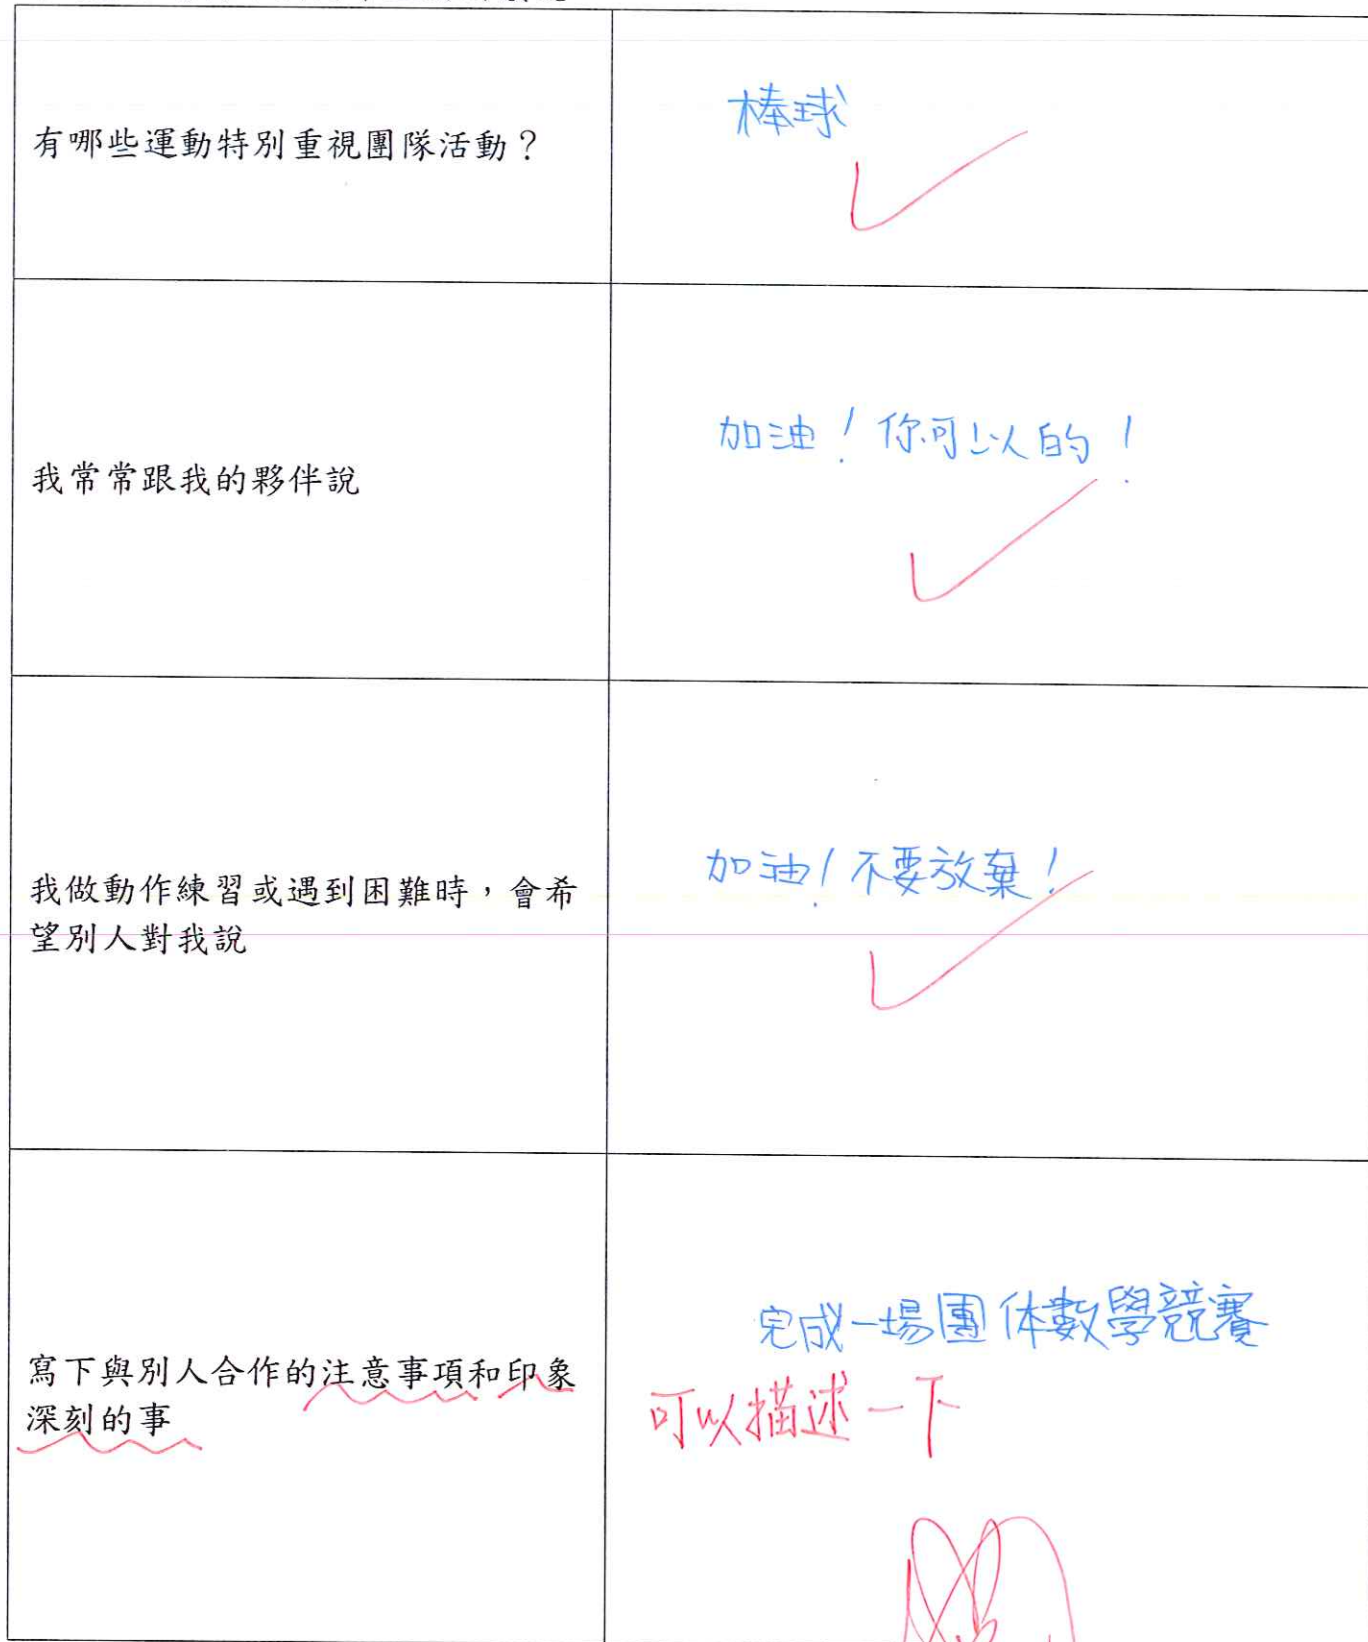 有哪些運動特別重視團隊活動？
棒球
我常常跟我的夥伴說
加油！你可以的！
我做動作練習或遇到困難時，會希
望別人對我說
加油！不要放棄！
寫下與別人合作的注意事項和印象
深刻的事
完成一場團体數學競賽
可以描述一下